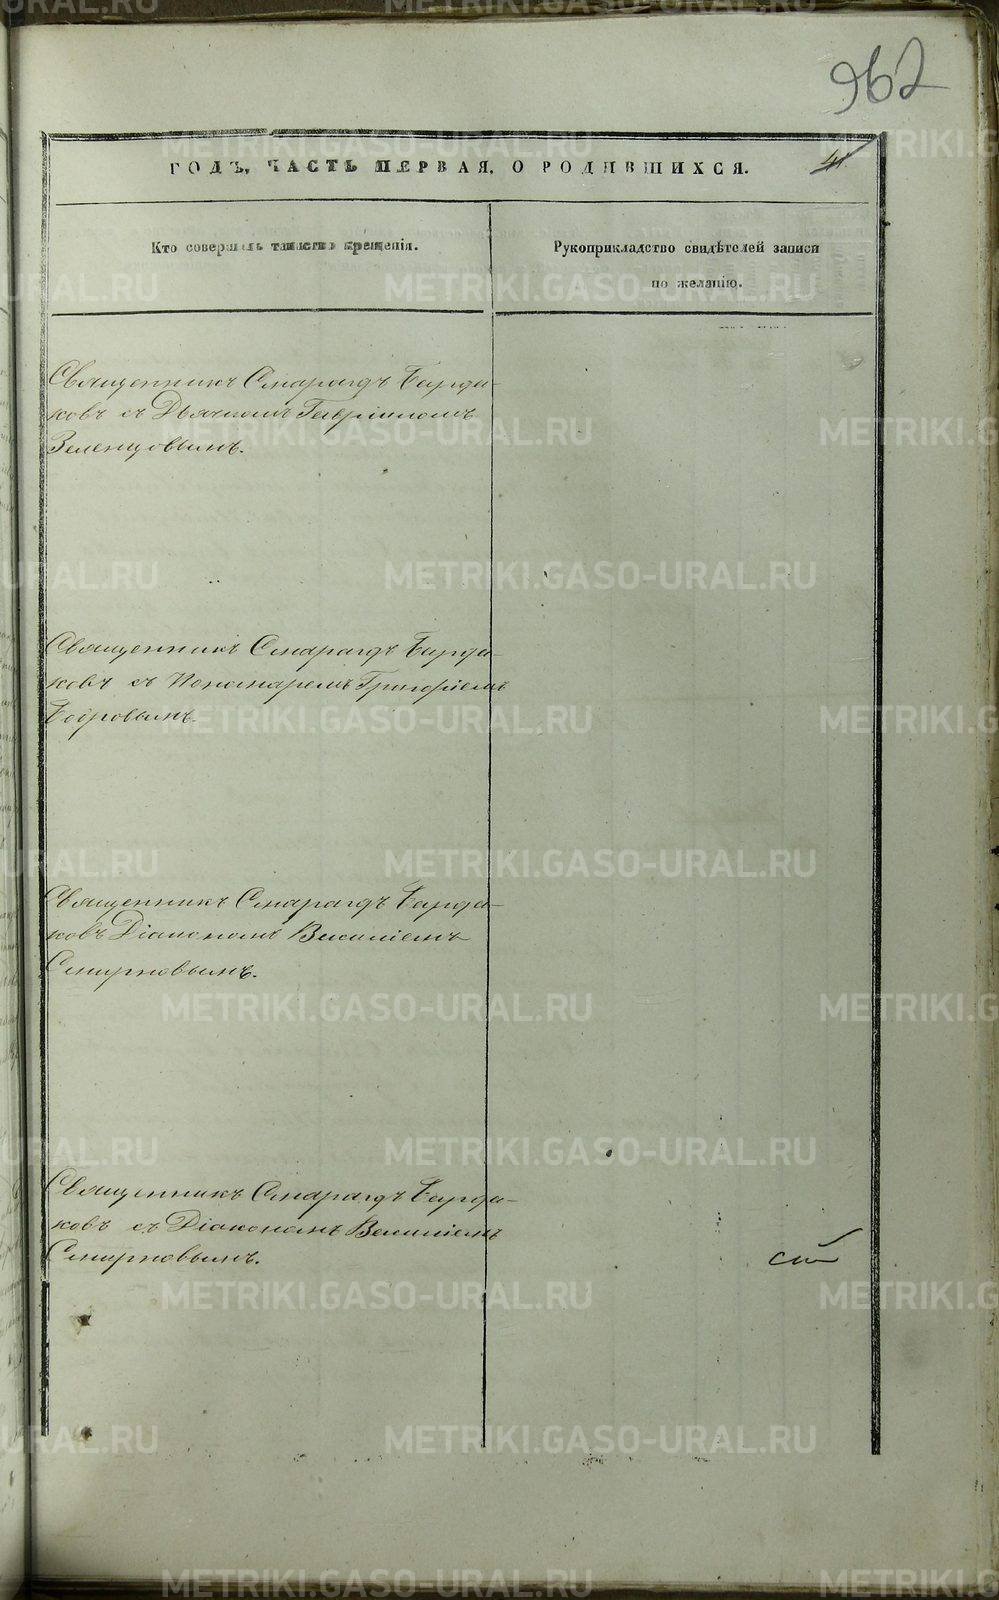 962
41
ГОДЪ, ЧАСТЬ ПЕРВАЯ, О РОДИВШИХСЯ.
Кто совершалъ таинство крещенія.
Рукоприкладство свидѣтелей записи
по желанію.
Священникъ Смарагдъ Барда-
ковъ съ Дьячкомъ Гавріиломъ
Зеленцовымъ.
Священникъ Смарагдъ Барда-
ковъ съ Пономаремъ Григоріемъ
Бобровымъ.
Священникъ Смарагдъ Барда-
ковъ Діакономъ Василіемъ
Смирновымъ.
Священникъ Смарагдъ Барда-
ковъ съ Діакономъ Василіемъ
Смирновымъ.
METRIKI.GASO-URAL.RU